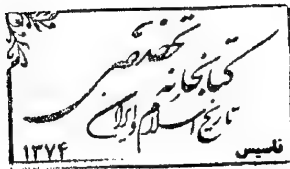 کتابخانه تخصصی
تاریخ اسلام و ایران
۱۳۷۴
فلسیس